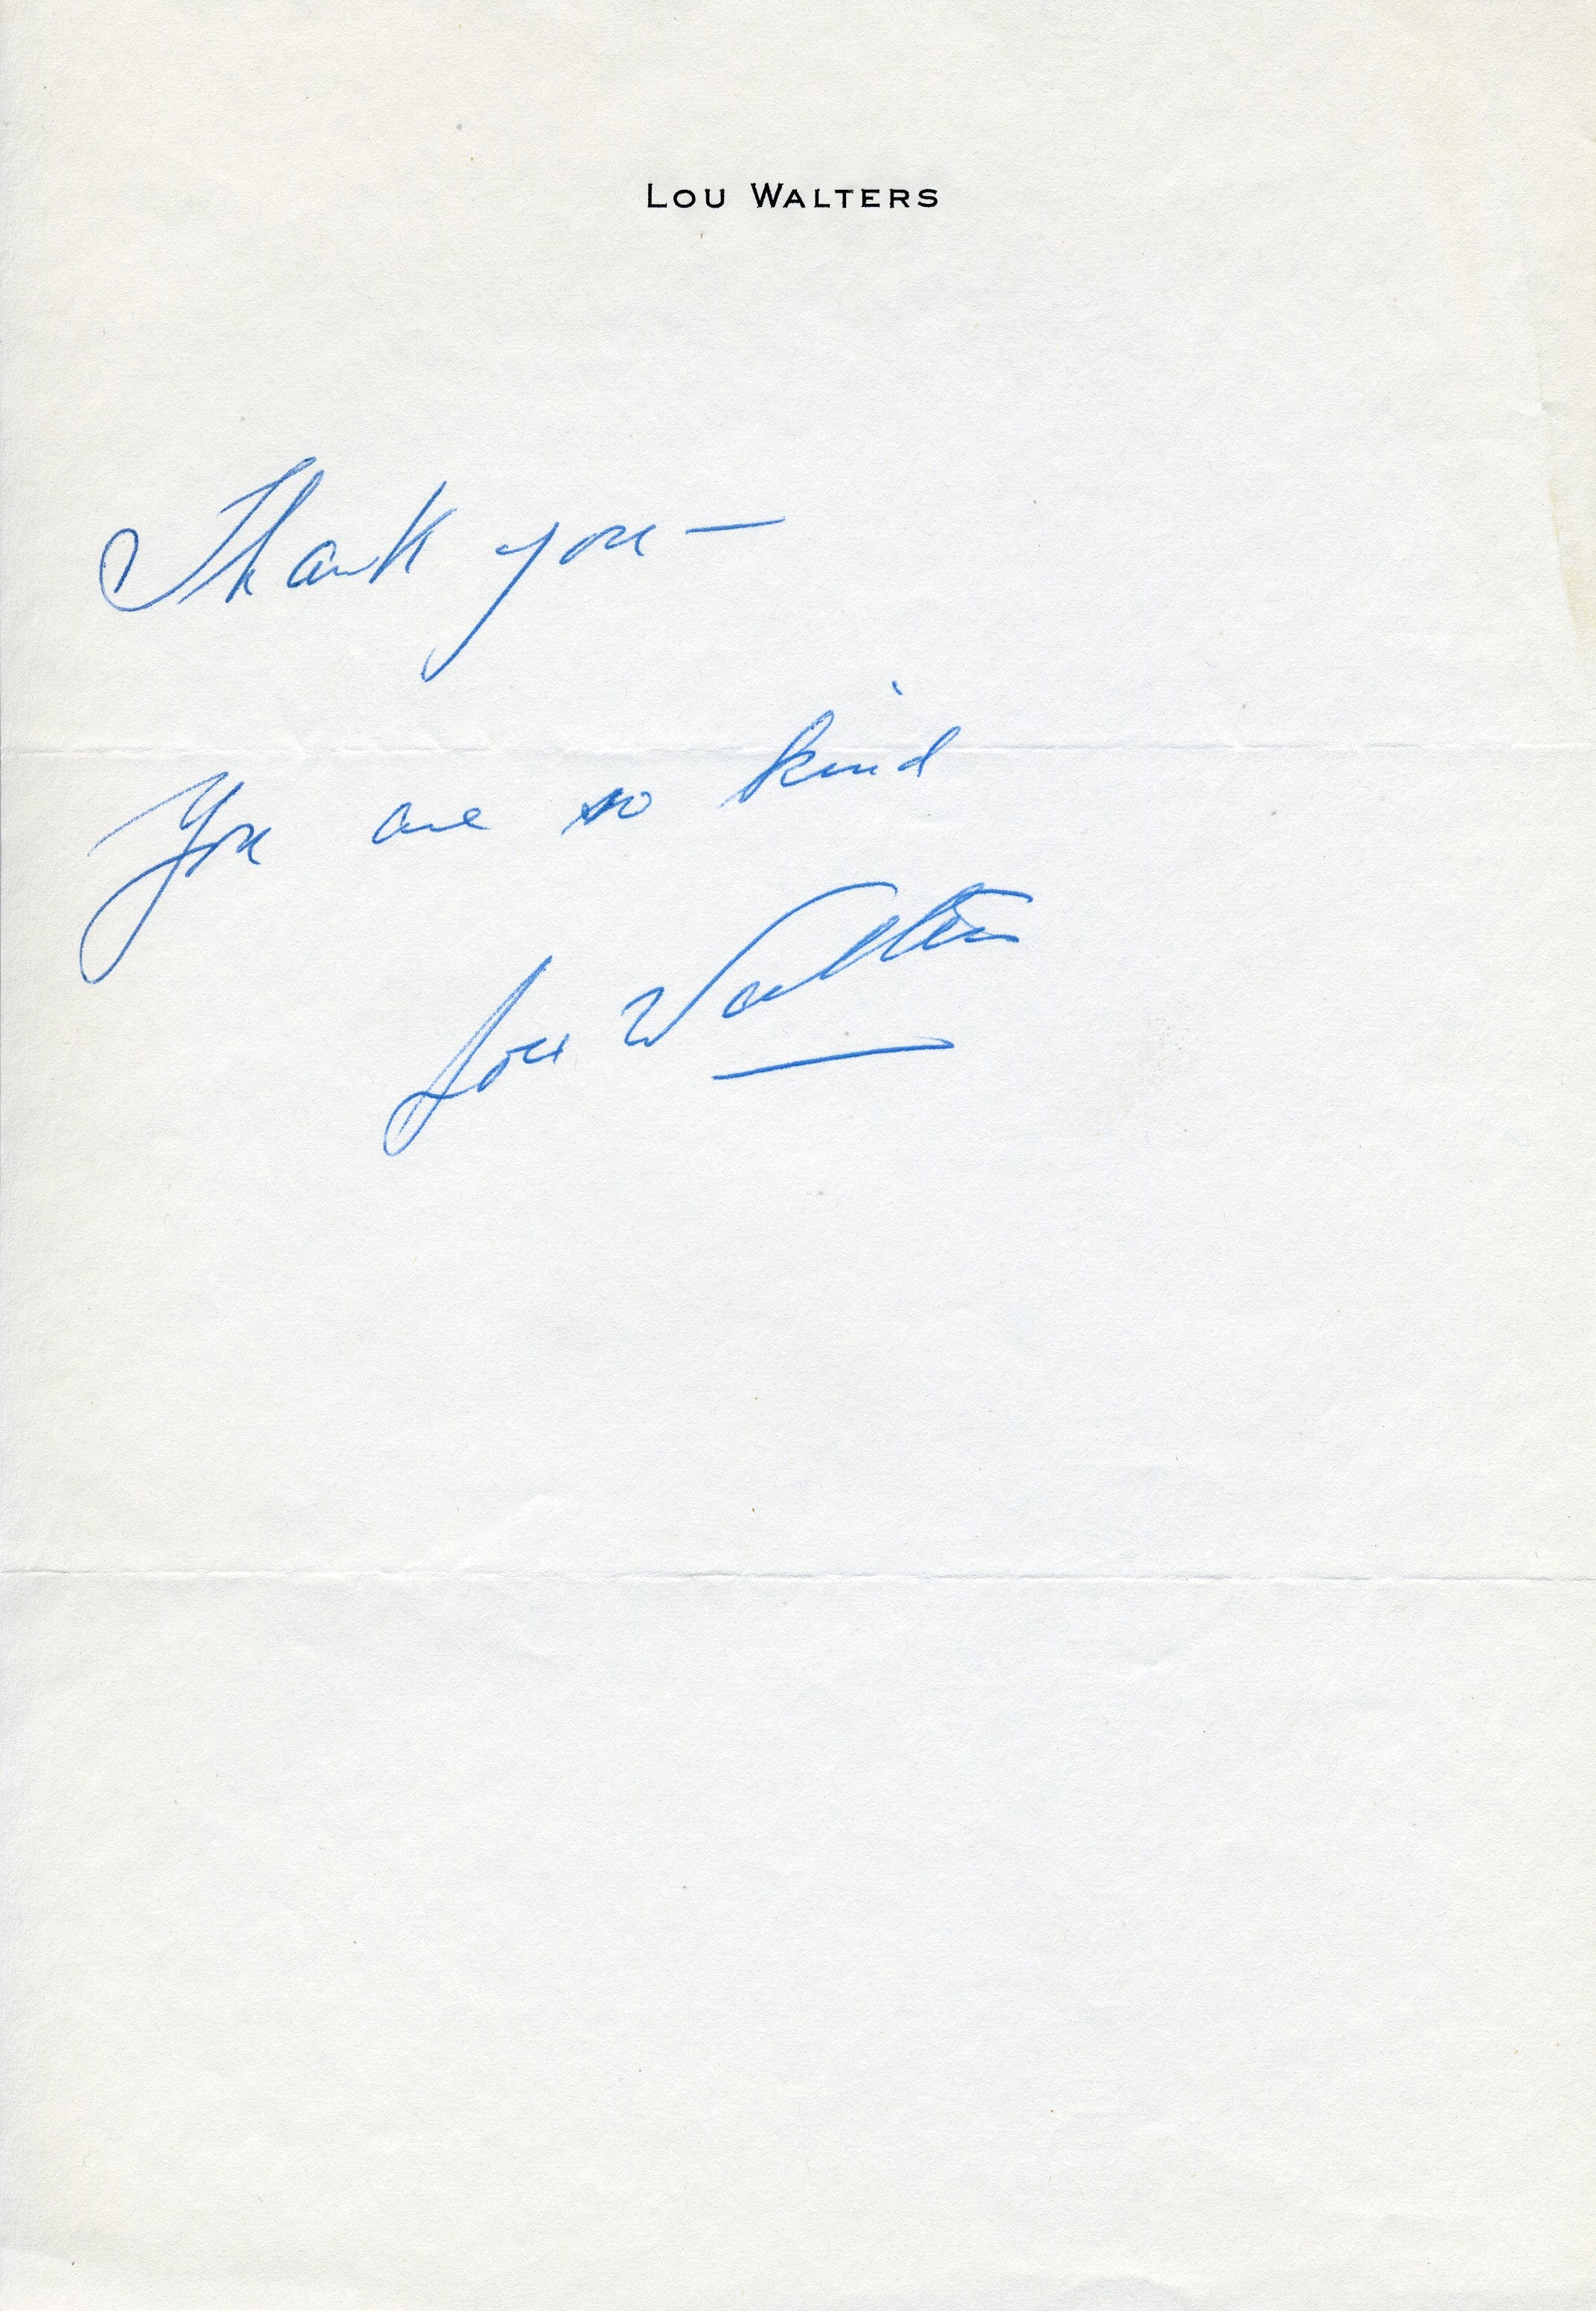 LOU WALTERS
Thank you —
You are so kind
Lou Walters